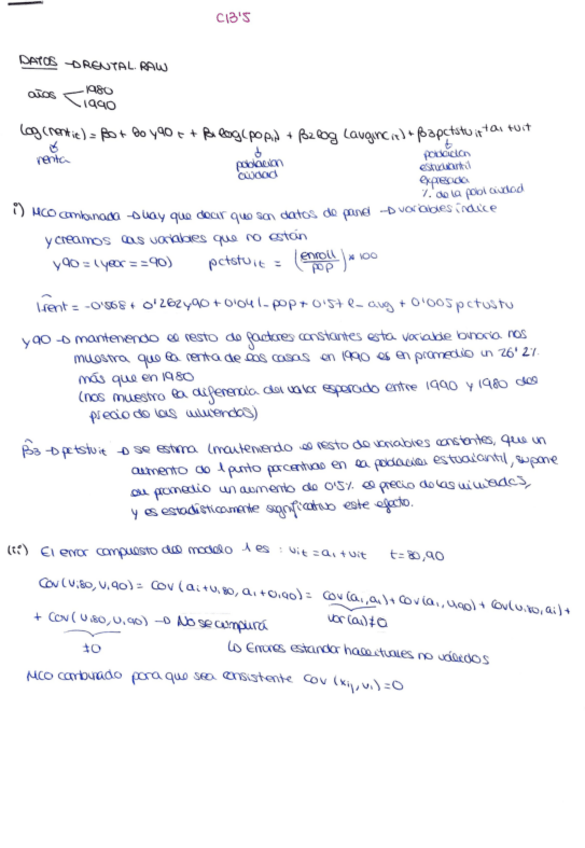 C13'5
DATOS → RENTAL.RAW
años 1980
1990
log(rent it) = β0 + δ0 y90 t + β1 log(pop it) + β2 log(avginc it) + β3 pctstu it + ai + uit
renta
población ciudad
población estudiantil expresada % de la pobl ciudad
i) MCO combinada → hay que decir que son datos de panel → variables índice
y creamos las variables que no están
y90 = (year == 90) pctstu it = (enroll/pop) * 100
l.rent = -0'568 + 0'262 y90 + 0'04 l_pop + 0'57 l_avg + 0'005 pctustu
y90 → manteniendo el resto de factores constantes esta variable binaria nos
muestra que la renta de las casas en 1990 es en promedio un 26'2%
más que en 1980
(nos muestra la diferencia del valor esperado entre 1990 y 1980 del
precio de las viviendas)
β̂3 → pctstu it → se estima (manteniendo el resto de variables constantes, que un
aumento de 1 punto porcentual en la población estudiantil, supone
en promedio un aumento de 0'5% el precio de las viviendas,
y es estadísticamente significativo este efecto.
(ii) El error compuesto del modelo 1 es : vit = ai + uit t = 80,90
Cov(vi80, vi90) = Cov(ai + ui80, ai + ui90) = Cov(ai, ai) + Cov(ai, ui90) + Cov(ui80, ai) +
var(ai) ≠ 0
+ Cov(ui80, ui90) → No se cumplirá
≠0
↳ Errores estandar habituales no válidos
MCO combinado para que sea consistente Cov(xij, vi) = 0